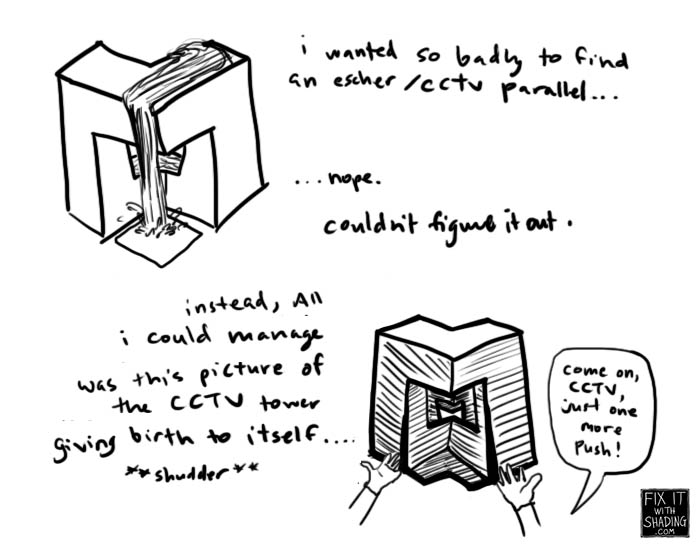 i wanted so badly to find
an escher/CCTV parallel...
...nope.
couldn't figure it out.
instead, All
i could manage
was this picture of
the CCTV tower
giving birth to itself....
**shudder**
come on,
CCTV,
just one
more
push!
FIX IT
WITH
SHADING
.COM